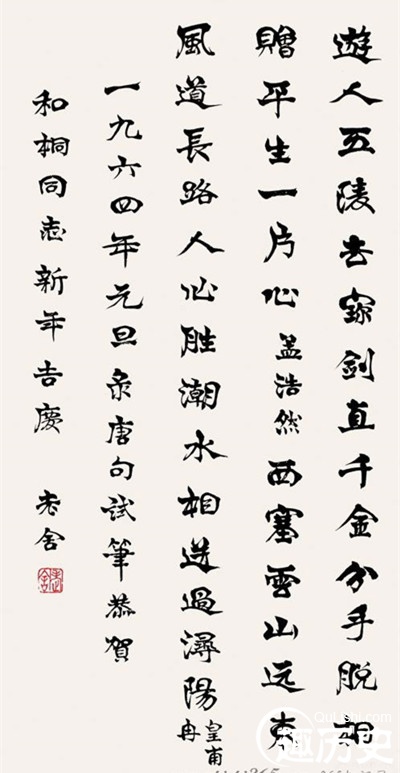 遊人五陵去寳劍直千金分手脫相
贈平生一片心孟浩然西塞雲山远東
風道長路人心胜潮水相送過潯陽皇甫冉
一九六四年元旦录唐句試筆恭賀
和桐同志新年吉慶 老舍
Qulishi.com
趣历史